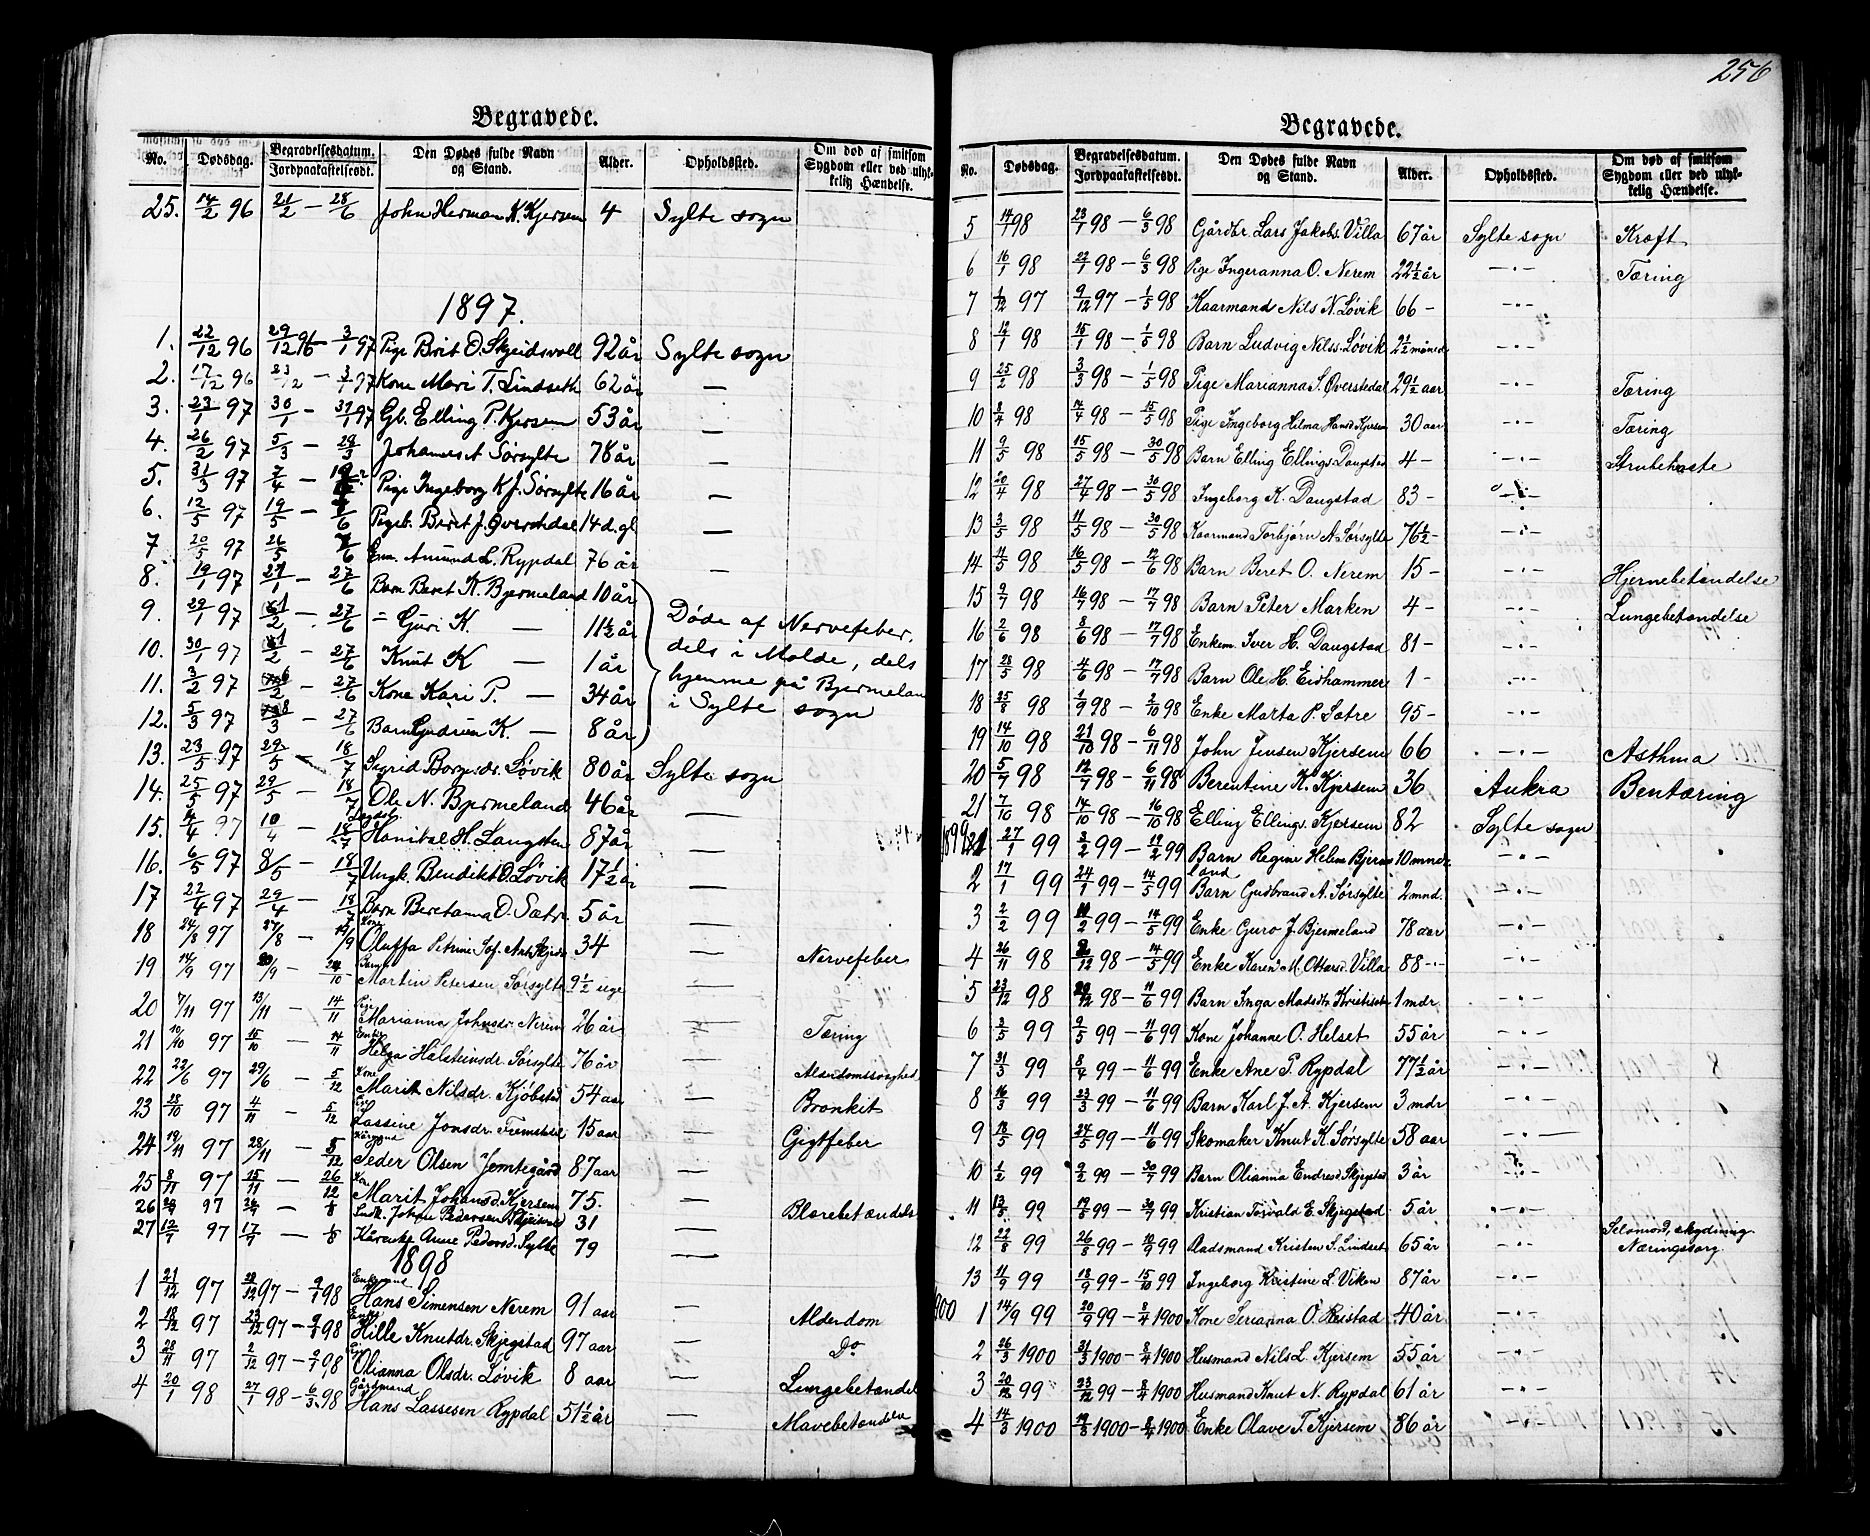 256
Begravede.
No. Dødsdag. Begravelsesdatum. Jordpaakastelsesdt. Den Dødes fulde Navn og Stand. Alder. Opholdssted. Om død af smitsom Sygdom eller ved ulykkelig Hændelse.
25. 14/2 96 21/2 – 28/6 John Herman K. Kjersem 4 Sylte sogn
1897.
1. 22/12 96 29/12 96 – 3/1 97 Pige Brit O. Skjeidsvoll 92 år Sylte sogn
2. 17/12 96 23/12 – 3/1 97 Kone Mari T. Lindseth 62 år —
3. 23/1 97 30/1 – 31/1 97 Gb. Elling P. Kjersem 53 år —
4. 26/2 97 5/3 – 29/3 Johannes A Sørsylte 78 år —
5. 31/3 97 7/4 – Pige Ingeborg K J. Sørsylte 16 år —
6. 12/5 97 19/5 – /6 Pigeb. Beret J. Øverstedal 14 d. gl —
7 20/5 97 26/5 /6 Em. Amund L. Rypdal 76 år —
8. 19/1 97 27/1 – 27/6 Barn Beret K. Bjermeland 10 år
9. 29/1 97 /2 – 27/6 = Guri K. — 11½ år Døde af Nervefeber,
10. 30/1 97 /2 – 27/6 Knut K — 1 år dels i Molde, dels
11. 3/2 97 /2 – 27/6 Kone Kari P. — 34 år hjemme på Bjermeland
12. 5/3 97 /3 – 27/6 Barn Gudrun K. — 8 år i Sylte sogn
13. 23/5 97 29/5 – 18/7 Sigrid Løvik 80 år Sylte sogn
14. 25/5 97 29/5 – 18/7 Ole N. Bjermeland 46 år —
15. 4/4 97 10/4 – 18/7 Hanibal H. Langsten 87 år —
16. 6/5 97 8/5 – 18/7 Ungk. Bendikt O. Løvik 17½ år —
17 22/4 97 29/4 – 18/7 Barn Beretanna O. Sætre 5 år —
18 24/8 97 27/8 – 19/9 Kone Oluffa Petrine Sof. 34 — Nervefeber
19 14/9 97 20/9 – 24/10 Barn Martin Petersen Sørsylte 9½ uge —
20 7/11 97 13/11 – 14/11 Pige Marianna Johnsdr. Nerem 26 år — Tæring
21 10/10 97 15/10 – 14/11 Enke Helga Halsteinsdr. Sørsylte 76 år — Alderdomssvaghed
22 22/6 97 29/6 – 5/12 Kone Marit Nilsdr. Kjøbstad 54 aar — Bronkit
23 28/10 97 4/11 – 5/12 Lassine Jonsdr. 15 aar — Gigtfeber
24 19/11 97 28/11 – 5/12 Kårmand Peder Olsen Jemtegård 87 aar —
25 8/11 97 15/11 – 26/12 Marit Johansd. Kjersem 75. — Blærebetændelse
26 97 – Johan Pedersen 31
27 12/7 97 17/7 – Kårenke Anne Pedersd. Sylte 79 —
1898
1 21/12 97 /12 97 – 9/1 98 Enkemand Hans Simensen Nerem 91 aar — Alderdom
2 18/12 97 23/12 97 – 9/1 98 Enke Hille Knutdr. Skjegstad 97 aar — Do
3 20/11 97 2/12 97 – 9/1 98 Olianna Olsdr. Løvik 8 aar — Lungebetændel
4 20/1 98 27/1 98 – 6/3 98 Gårdmand Hans Lassesen Rypdal 51½ år — Mavebetændelse
Begravede.
No. Dødsdag. Begravelsesdatum. Jordpaakastelsesdt. Den Dødes fulde Navn og Stand. Alder. Opholdssted. Om død af smitsom Sygdom eller ved ulykkelig Hændelse.
5 14/1 98 23/1 98 – 6/3 98 Gårdbr. Lars Jakobs. Villa 67 år Sylte sogn Kræft
6 16/1 98 22/1 98 – 6/3 98 Pige Ingeranna O. Nerem 22½ år —"— Tæring
7 1/12 97 9/12 97 – 1/5 98 Kaarmand Nils N. Løvik 66 – —"—
8 12/1 98 15/1 98 – 1/5 98 Barn Ludvig Nilss. Løvik 2½ måned —"—
9 25/2 98 3/3 98 – 1/5 98 Pige Marianna S. Øverstedal 29½ aar —"— Tæring
10 8/4 98 14/4 98 – 15/5 98 Pige Ingeborg Helma Hansd Kjersem 30 aar —"— Tæring
11 9/5 98 15/5 98 – 30/5 98 Barn Elling Ellings. Daugstad 4 – —"— Strubehoste
12 20/4 98 27/4 98 – 30/5 98 Ingeborg K. Daugstad 83 – —"—
13 3/5 98 11/5 98 – 30/5 98 Kaarmand Torbjørn A. Sørsylte 76½ – —"—
14 11/5 98 16/5 98 – 12/6 98 Barn Beret O. Nerem 15 – —"— Hjernebetændelse
15 9/7 98 16/7 98 – 17/7 98 Barn Peter Marken 4 – —"— Lungebetændelse
16 2/6 98 8/6 98 – 17/7 98 Enkem Iver H. Daugstad 81 – —"—
17 28/5 98 4/6 98 – 17/7 98 Barn Ole H. Eidhammer 1 – —"—
18 25/8 98 1/9 98 – 2/10 98 Enke Marta P. Sætre 95 – —"—
19 14/10 98 21/10 98 – 6/11 98 John Jensen Kjersem 66 —"— Asthma
20 5/7 98 12/7 98 – 6/11 98 Berentine K. Kjersem 36 Aukra Bentæring
21 7/10 98 14/10 98 – 16/10 98 Elling Ellings. Kjersem 82 Sylte sogn
1899 1 27/1 99 3/2 99 – 19/2 99 Barn Regine Helene Bjermeland 10 mndr —"—
2 17/1 99 24/1 99 – 14/5 99 Barn Gudbrand A. Sørsylte 2 mnd. —"—
3 2/2 99 /2 99 – 14/5 99 Enke Guro J. Bjermeland 78 aar —"—
4 26/11 98 /12 98 – 14/5 99 Enke Karen M. Ottersd. Villa 88 – —"—
5 23/12 98 /12 98 – 11/6 99 Barn Inga Madsdtr. 1 mdr. —"—
6 3/5 99 9/5 99 – 11/6 99 Kone Johanne O. Helset 55 år —"—
7 31/3 99 8/4 99 – 11/6 99 Enke Ane P. Rypdal 77½ år —"—
8 16/3 99 23/3 99 – 11/6 99 Barn Karl J. A. Kjersem 3 mdr —"—
9 18/5 99 24/5 99 – 11/6 99 Skomaker Knut K. Sørsylte 58 aar —"—
10 1/2 99 9/2 99 – 30/7 99 Barn Olianna Endresd Skjegstad 3 år —"—
11 13/5 99 19/5 99 – 30/7 99 Kristian Torvald E. Skjegstad 5 år —"—
12 22/8 99 26/8 99 – 10/9 99 Radsmand Kristen S. Lindset 65 år —"— Selvmord, skydning Næringssorg
13 11/9 99 18/9 99 – 15/10 99 Ingeborg Kristine L. Viken 87 år —"—
1900 1 14/9 99 20/9 99 – 8/4 1900 Kone Serianna O. Restad 40 år —"—
2 26/3 1900 31/3 1900 – 8/4 1900 Husmand Nils L. Kjersem 55 år —"—
3 20/12 99 23/12 99 – 8/4 1900 Husmand Knut N. Rypdal 61 år —"—
4 14/3 1900 19/3 1900 – 8/4 1900 Enke Olave T. Kjersem 86 år —"—